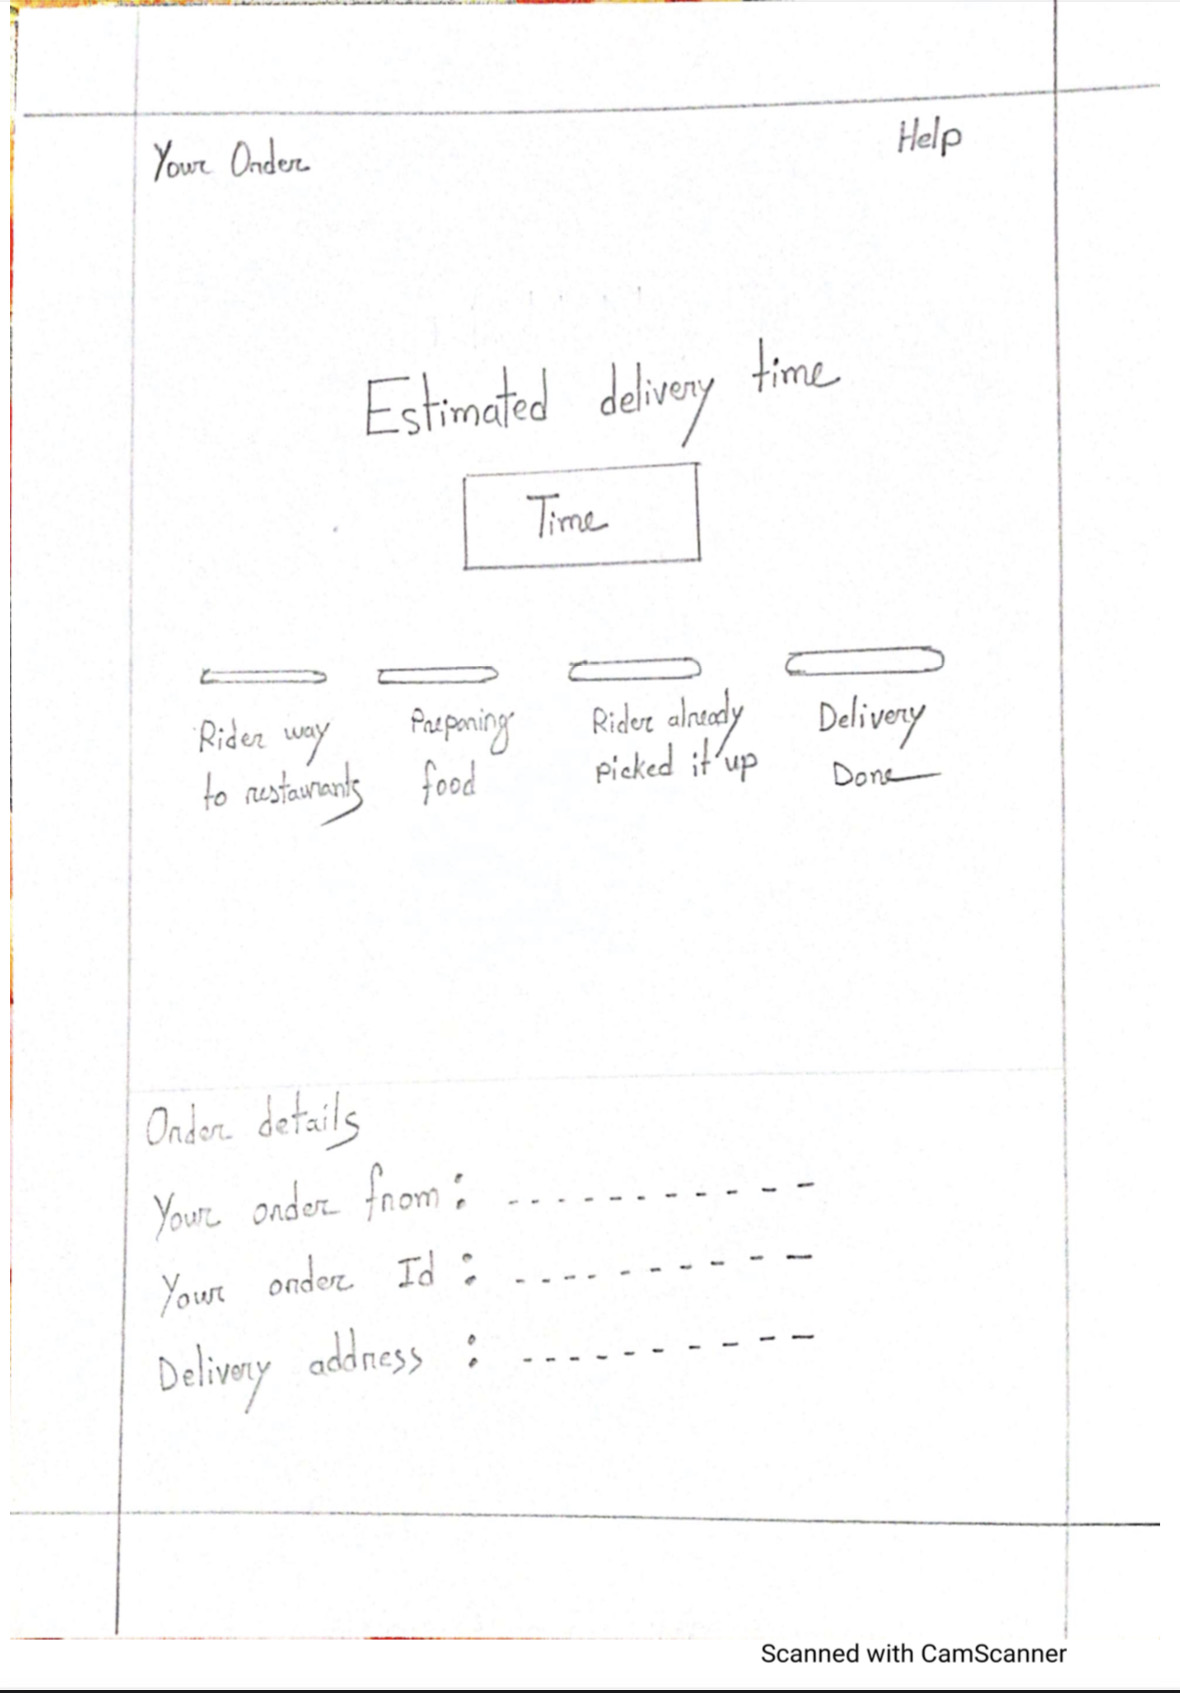 Your Order
Help
Estimated delivery time
Time
Rider way
to restaurants
Preparing
food
Rider already
picked it up
Delivery
Done
Order details
Your order from : - - - - - - - - - - -
Your order Id : - - - - - - - - - -
Delivery address : - - - - - - - - - -
Scanned with CamScanner